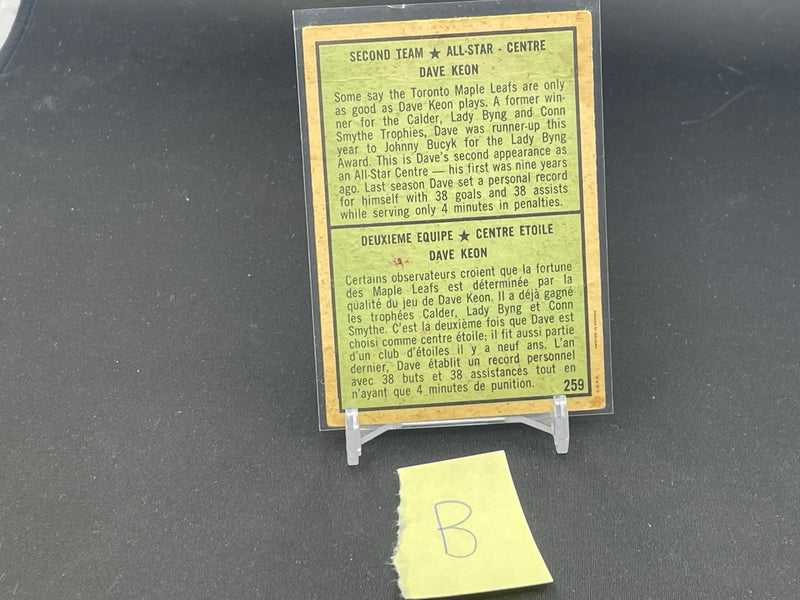 SECOND TEAM ★ ALL-STAR - CENTRE
DAVE KEON
Some say the Toronto Maple Leafs are only
as good as Dave Keon plays. A former win-
ner for the Calder, Lady Byng and Conn
Smythe Trophies, Dave was runner-up this
year to Johnny Bucyk for the Lady Byng
Award. This is Dave's second appearance as
an All-Star Centre — his first was nine years
ago. Last season Dave set a personal record
for himself with 38 goals and 38 assists
while serving only 4 minutes in penalties.
DEUXIEME EQUIPE ★ CENTRE ETOILE
DAVE KEON
Certains observateurs croient que la fortune
des Maple Leafs est déterminée par la
qualité du jeu de Dave Keon. Il a déjà gagné
les trophées Calder, Lady Byng et Conn
Smythe. C'est la deuxième fois que Dave est
choisi comme centre étoile; il fit aussi partie
d'un club d'étoiles il y a neuf ans. L'an
dernier, Dave établit un record personnel
avec 38 buts et 38 assistances tout en
n'ayant que 4 minutes de punition.
259
B